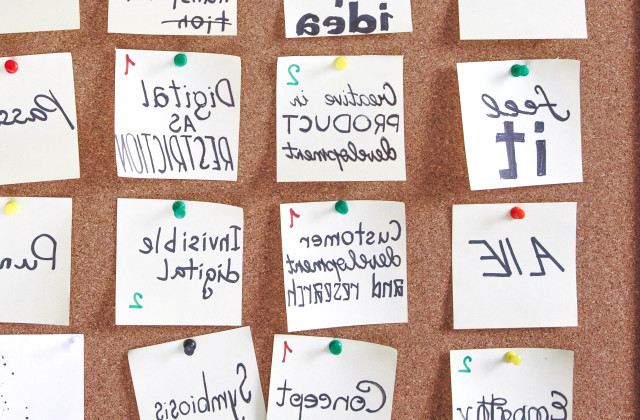 idea
feel
it
2
Creative in
PRODUCT
development
1
Digital
AS
RESTRICTION
1
Customer
development
and research
Invisible
digital
2
2
Empathy
1
Concept
Symbiosis